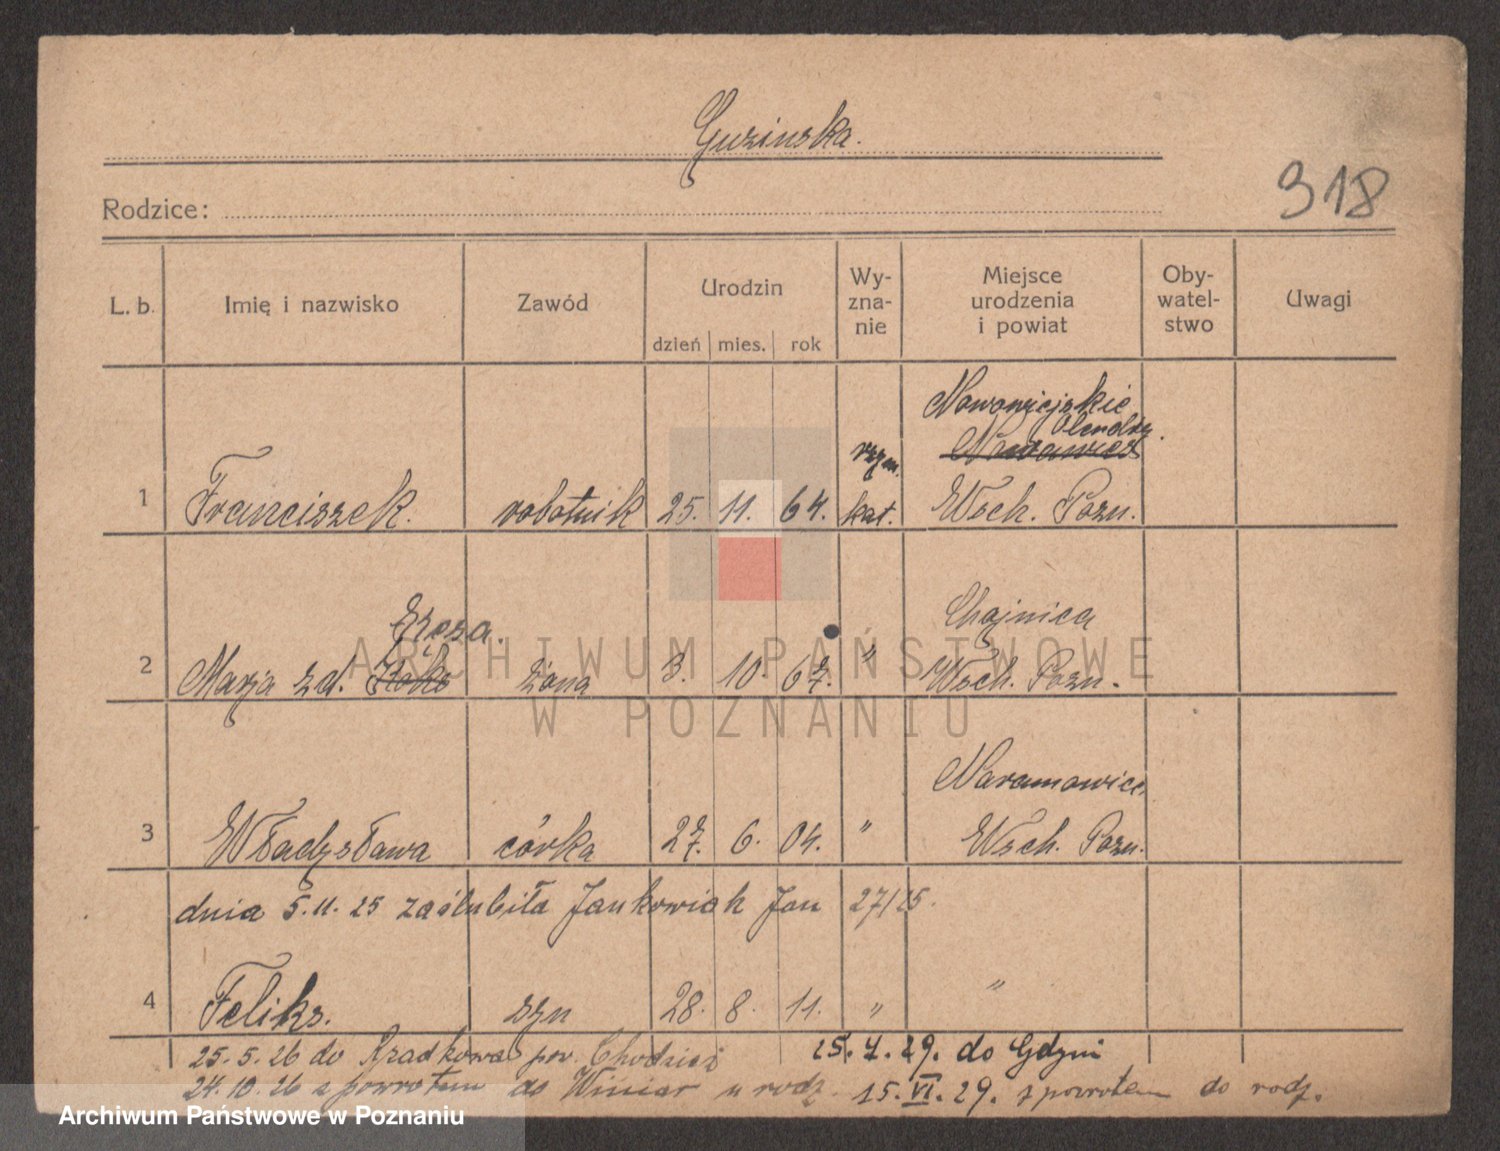 Guzinska.
318
Rodzice:
L. b. Imię i nazwisko Zawód Urodzin Wy-zna-nie Miejsce urodzenia i powiat Oby-watel-stwo Uwagi
dzień mies. rok
Nowowiejskie
1 Franciszek. robotnik 25. 11. 64. rzym. kat. Wsch. Pozn.
Chojnica
2 Marja zd. żona 3. 10. 67. " Wsch. Pozn.
Naramowice
3 Władysława córka 27. 6. 04. " Wsch. Pozn.
dnia 5.11.25 zaślubiła Jankowiak Jan 27/25.
4 Feliks. syn 28. 8. 11. " "
25.5.26 do pow. Chodzież 25.4.29. do Gdyni
24.10.26 z powrotem do Winiar u rodz. 15.VI.29. z powrotem do rodz.
ARCHIWUM PAŃSTWOWE
W POZNANIU
Archiwum Państwowe w Poznaniu